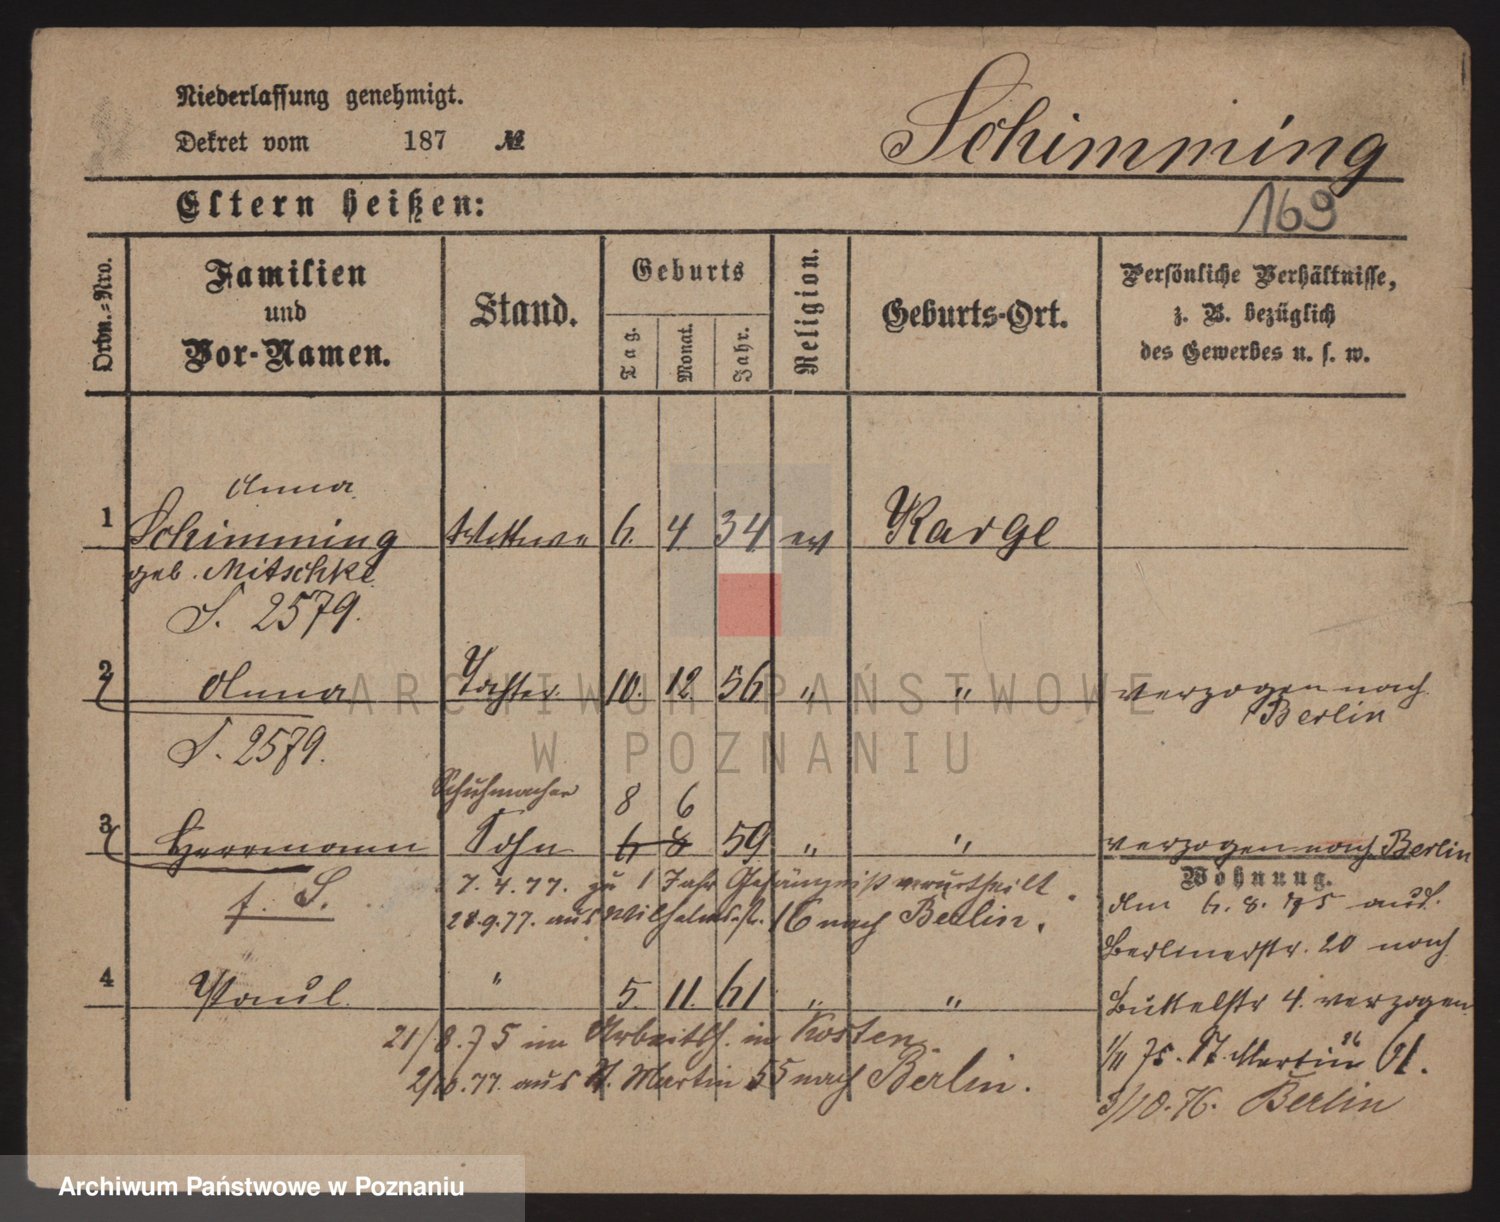 Niederlassung genehmigt.
Dekret vom 187 №
Schimming
169
Eltern heißen:
Ordn.-Nro.
Familien und Vor-Namen.
Stand.
Geburts
Tag.
Monat.
Jahr.
Religion.
Geburts-Ort.
Persönliche Verhältnisse, z. B. bezüglich des Gewerbes u. s. w.
Anna
1 Schimming Wittwe 6. 4 34 ev Karge
geb. Mitschke
S. 2579.
2 Anna Tochter 10. 12. 56 " " verzogen nach
Berlin
S. 2579.
Schuhmacher 8 6
3 Herrmann Sohn 6 8 59 " " verzogen nach Berlin
7. 4. 77. zu 1 Jahr Gefängniß verurtheilt.
Wohnung.
f. S.
28.9.77. aus Wilhelmstr. 16 nach Berlin.
Am 6. 8. 75 aus
Berlinerstr. 20 nach
4 Paul. " 5. 11. 61 " " Büttelstr 4. verzogen
21/8.75 im Arbeitsh. in Kosten.
1/11 75. St. Martin 61.
2/10.77. aus St. Martin 55 nach Berlin.
3/10.76. Berlin
ARCHIWUM PAŃSTWOWE
W POZNANIU
Archiwum Państwowe w Poznaniu